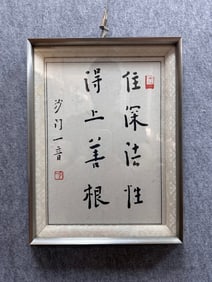 住深法性
得上善根
沙门一音